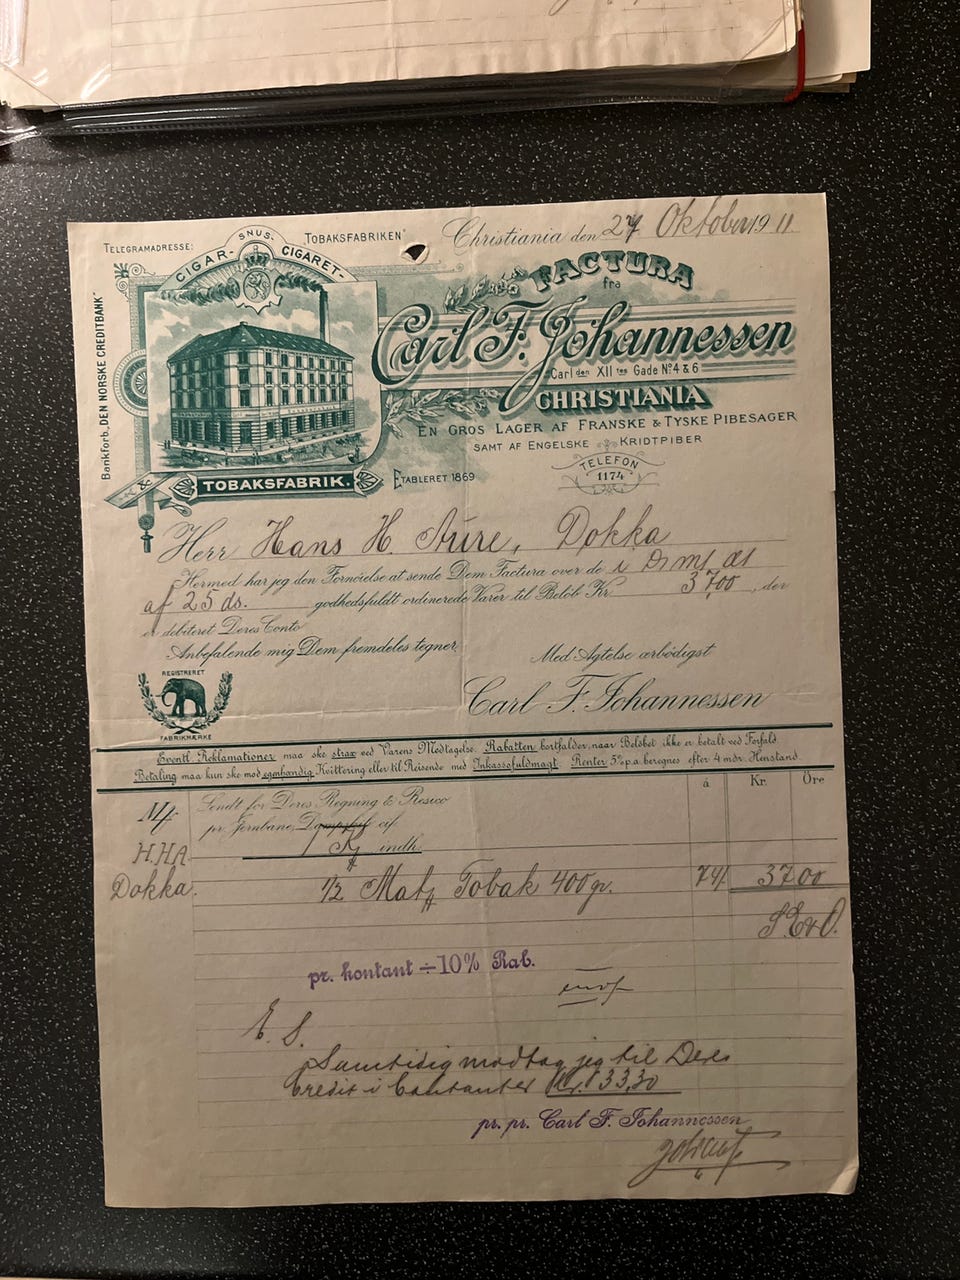 TELEGRAMADRESSE: "TOBAKSFABRIKEN"
CIGAR- SNUS- CIGARET-
Christiania den 27 Oktober 1911.
Bankforb. "DEN NORSKE CREDITBANK"
FACTURA
fra
Carl F. Johannessen
Carl den XII tes Gade No 4 & 6
CHRISTIANIA
EN GROS LAGER AF FRANSKE & TYSKE PIBESAGER
SAMT AF ENGELSKE KRIDTPIBER
TELEFON
1174
& TOBAKSFABRIK.
ETABLERET 1869
Herr Hans H. Aure, Dokka
Hermed har jeg den Fornöielse at sende Dem Factura over de i
af 25 ds. godhedsfuldt ordinerede Varer til Beløb Kr. 37,00, der
er debiteret Deres Conto
Anbefalende mig Dem fremdeles tegner
Med Agtelse ærbödigst
Carl F. Johannessen
REGISTRERET
FABRIKMÆRKE
Eventl. Reklamationer maa ske strax ved Varens Modtagelse. Rabatten bortfalder, naar Beløbet ikke er betalt ved Forfald
Betaling maa kun ske mod egenhændig Kvittering eller til Reisende med Inkassofuldmagt. Renter 5% p.a. beregnes efter 4 mdr. Henstand.
á Kr. Öre
Sendt for Deres Regning & Resico
pr. Jernbane, Dampskib cif
indh.
H.H.A.
Dokka.
1/2 Tobak 400 gr. 74/ 37 00
S.E&O.
pr. kontant ÷ 10% Rab.
E. S.
Samtidig modtog jeg til Deres
Credit i Contanter Kr. 33,30
pr. pr. Carl F. Johannessen